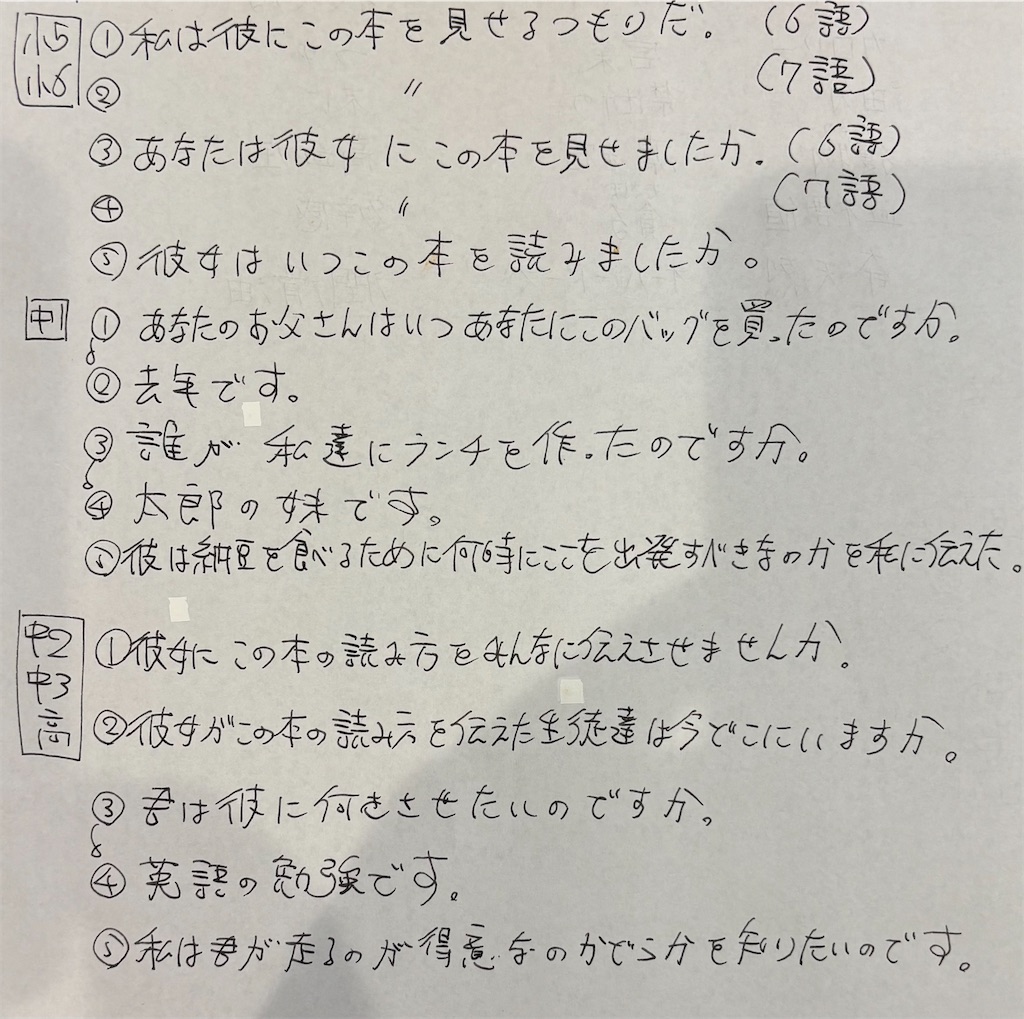 小5 ① 私は彼にこの本を見せるつもりだ。 (6語)
小6 ② 〃 (7語)
③ あなたは彼女にこの本を見せましたか。(6語)
④ 〃 (7語)
⑤ 彼女はいつこの本を読みましたか。
中1 ① あなたのお父さんはいつあなたにこのバッグを買ったのですか。
② 去年です。
③ 誰が私達にランチを作ったのですか。
④ 太郎の妹です。
⑤ 彼は納豆を食べるために何時にここを出発すべきなのかを私に伝えた。
中2 中3 高 ① 彼女にこの本の読み方をみんなに伝えさせませんか。
② 彼女がこの本の読み方を伝えた生徒達は今どこにいますか。
③ 君は彼に何をさせたいのですか。
④ 英語の勉強です。
⑤ 私は君が走るのが得意なのかどうかを知りたいのです。